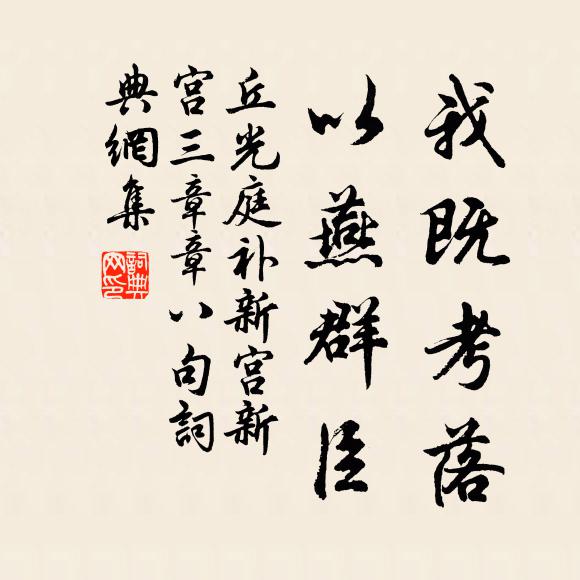 我既考落
以燕群臣
丘光庭补新宫新
宫三章章八句詞
典網集
詞典
网印